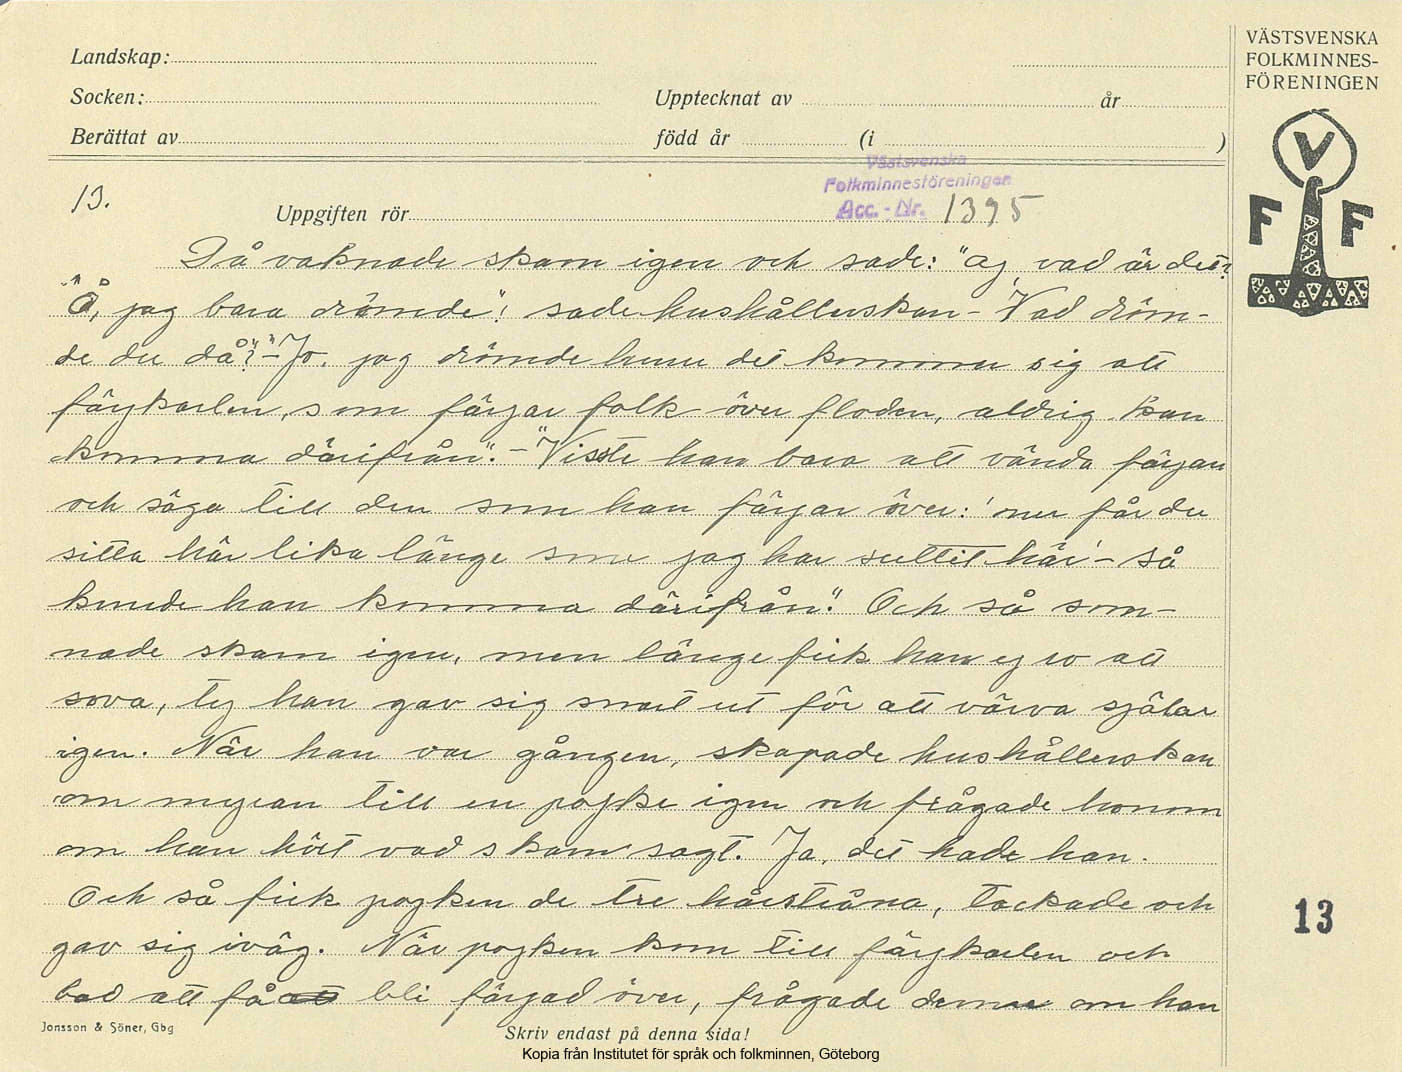 Landskap:
Socken:
Upptecknat av
år
Berättat av
född år
(i
)
VÄSTSVENSKA
FOLKMINNES-
FÖRENINGEN
V
F F
Västsvenska
Folkminnesföreningen
Acc. - Nr. 1395
13.
Uppgiften rör
Då vaknade skam igen och sade: "aj, vad är det?
"Å, jag bara drömde"! sade hushållerskan - Vad dröm-
de du då?" - "Jo, jag drömde huru det kommer sig att
färjkarlen, som färjar folk över floden, aldrig kan
komma därifrån". - "Visste han bara att vända färjan
och säga till den som han färjar över: 'nu får du
sitta här lika länge som jag har suttit här' - så
kunde han komma därifrån." Och så som-
nade skam igen, men länge fick han ej ro att
sova, ty han gav sig snart ut för att värva själar
igen. När han var gången, skapade hushållerskan
om myran till en pojke igen och frågade honom
om han hört vad skam sagt. Ja, det hade han.
Och så fick pojken de tre hårstråna, tackade och
gav sig iväg. När pojken kom till färjkarlen och
bad att få bli färjad över, frågade denne om han
13
Jonsson & Söner, Gbg
Skriv endast på denna sida!
Kopia från Institutet för språk och folkminnen, Göteborg